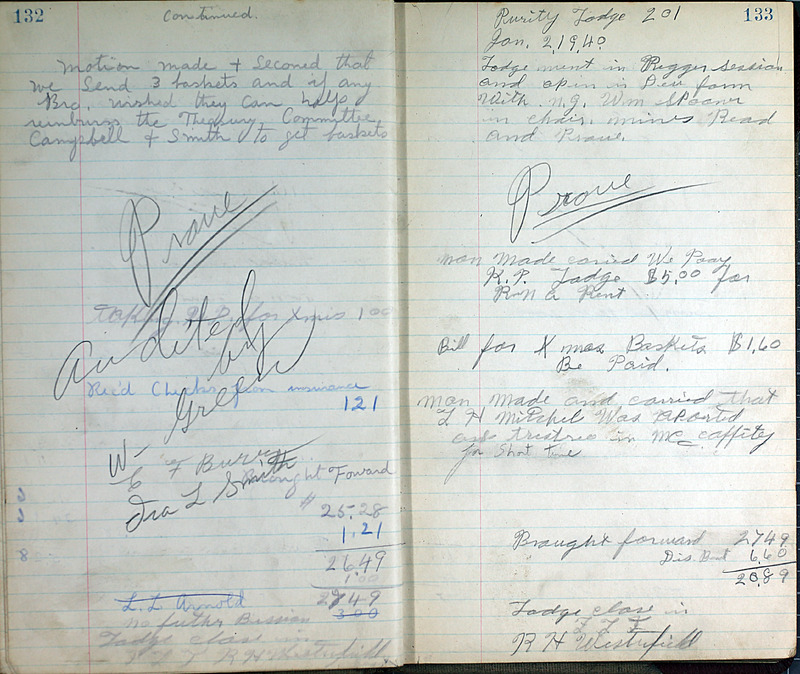 132
Continued.
Motion made + Seconed that
we Send 3 baskets and if any
Bro. wished they can help
reimburs the Theasury. Committee,
Campbell + Smith to get baskets
Prove
taking up for Xmis 1 00
Audited
by
Rec'd Checks from insurance
121
W - Green
C F Burns
Brought Foward
Ira L Smith
# 25.28
1.21
2649
1.00
L. L. Arnold 2749
300
no futher Bission
Lodge close in
F L T R H Westerfield
Purity Lodge 201
133
Jan. 2, 1940
Lodge ment in Regger session
and open in Due form
With N.G. Wm Spooner
in chair. minus Read
and Prove.
Prove
mon Made carried We Pay
K. P. Lodge $5.00 for
Rent
Bill for Xmas Baskets $1.60
Be Paid.
mon made and carried that
L H Mitchel Was aported
trustree in McCaffity
for Short time
Brought forward 2749
Dis. Bust 6.60
2089
Lodge close in
F L T
R H Westerfield